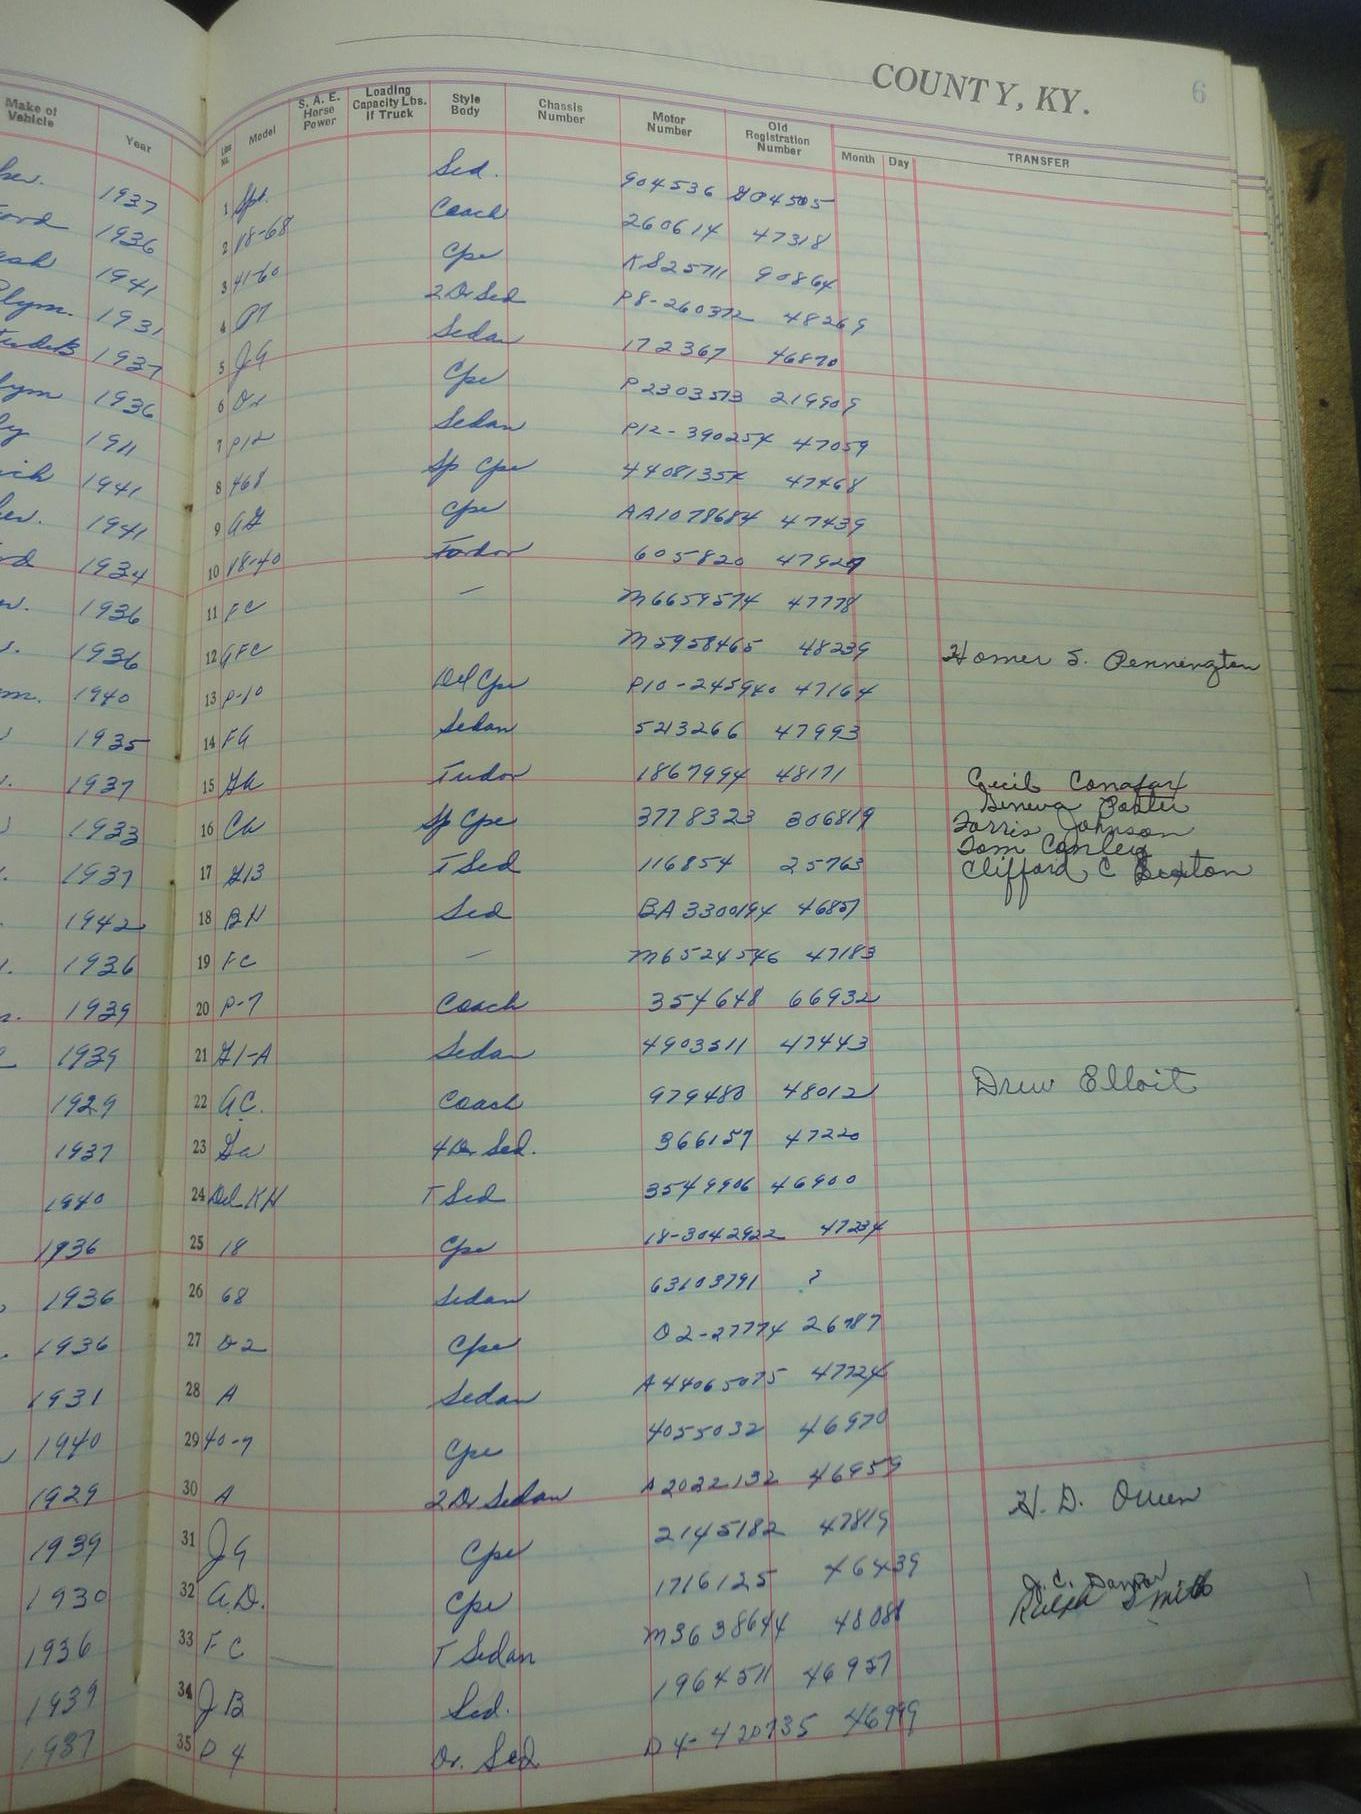 COUNTY, KY. 6
Make of Vehicle Year Line No. Model S. A. E. Horse Power Loading Capacity Lbs. If Truck Style Body Chassis Number Motor Number Old Registration Number Month Day TRANSFER
1937 1 Spt. Sed. 904536
1936 2 V8-68 Coach 260614 47318
1941 3 41-60 Cpe KS25711 90864
Plym. 1931 4 2 Dr Sed P8-260372 48269
1937 5 JG Sedan 172367 46870
1936 6 Cpe P2303573 219909
1911 7 P12 Sedan P12-390254 47059
1941 8 468 Sp Cpe 44081354 47468
1941 9 AG Cpe AA1078684 47439
1934 10 V8-40 Fordor 605820 47929
1936 11 FC — M6659574 47778
1936 12 GFC M5958465 48239 Homer S. Pennington
1940 13 P-10 Del Cpe P10-245940 47164
1935 14 FG Sedan 5213266 47993
1937 15 Ga Tudor 1867994 48171 Cecil
1933 16 Ca Sp Cpe 3778323 306819 Geneva Porter
Farris Johnson
Tom Conley
1937 17 G13 T Sed 116854 25763 Clifford C Sexton
1942 18 BH Sed BA3300194 46857
1936 19 FC — M6524546 47183
1939 20 P-7 Coach 354648 66932
1939 21 G1-A Sedan 4903511 47443
1929 22 AC. Coach 979480 48012 Drew Elloit
1937 23 Ga 4 Dr Sed. 366157 47220
1940 24 Del KH T Sed 3549906 46900
1936 25 18 Cpe 18-3042922 47234
1936 26 68 Sedan 63103791 ?
1936 27 D2 Cpe D2-27774 26787
1931 28 A Sedan A44065075 47724
1940 29 40-7 Cpe 4055032 46970
1929 30 A 2 Dr Sedan A2022132 46959
1939 31 JG Cpe 2145182 47819 H. D. Owen
1930 32 A.D. Cpe 1716125 46439
J. C.
1936 33 FC T Sedan M3638644 48088 Ralph Smith
1939 34 JB Sed. 1964511 46957
1937 35 D4 Dr. Sed D4-420735 46999